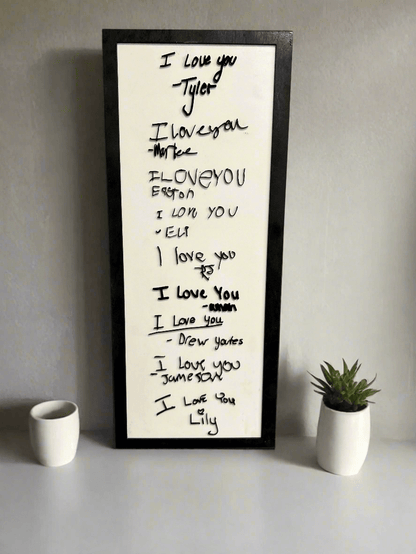 I Love you
-Tyler
I love you
I LOVEYOU
Easton
I LOVE YOU
- Eli
I love you
I Love You
I Love you
- Drew yates
I Love you
- Jameson
I Love You
Lily